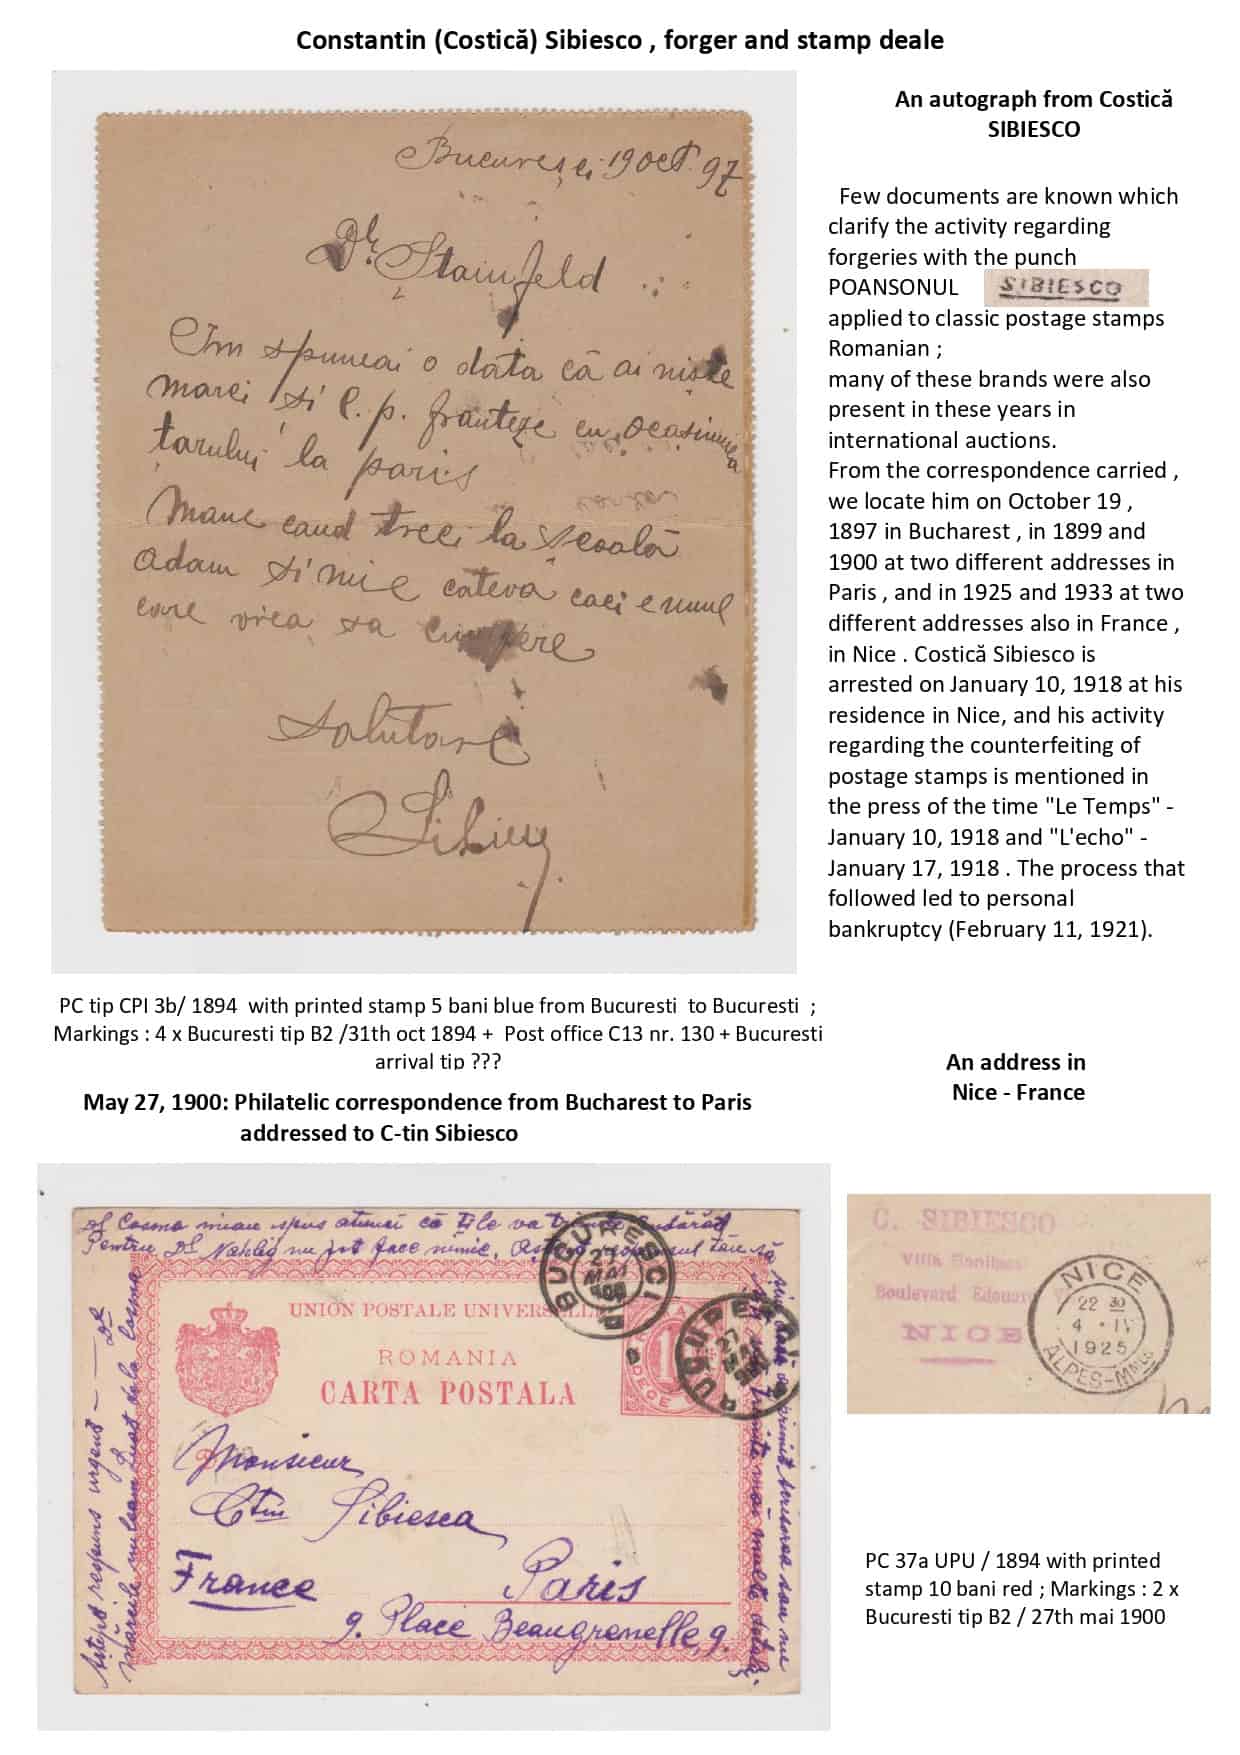 Constantin (Costică) Sibiesco , forger and stamp deale
An autograph from Costică
SIBIESCO
Few documents are known which
clarify the activity regarding
forgeries with the punch
POANSONUL SIBIESCO
applied to classic postage stamps
Romanian ;
many of these brands were also
present in these years in
international auctions.
From the correspondence carried ,
we locate him on October 19 ,
1897 in Bucharest , in 1899 and
1900 at two different addresses in
Paris , and in 1925 and 1933 at two
different addresses also in France ,
in Nice . Costică Sibiesco is
arrested on January 10, 1918 at his
residence in Nice, and his activity
regarding the counterfeiting of
postage stamps is mentioned in
the press of the time "Le Temps" -
January 10, 1918 and "L'echo" -
January 17, 1918 . The process that
followed led to personal
bankruptcy (February 11, 1921).
București 19 oct. 97
Dle Stainfeld
Îmi spuneai o data că ai niște
marci si c. p. franteze cu ocasiunea
țarului la paris
Mane cand treci la școală
adam si mie cateva caci e unul
care vrea sa cumpere
Salutare
PC tip CPI 3b/ 1894 with printed stamp 5 bani blue from Bucuresti to Bucuresti ;
Markings : 4 x Bucuresti tip B2 /31th oct 1894 + Post office C13 nr. 130 + Bucuresti
arrival tip ???
An address in
Nice - France
May 27, 1900: Philatelic correspondence from Bucharest to Paris
addressed to C-tin Sibiesco
Dl Cosma mi-au spus atunci că ți le va
Pentru Dl Nahlig nu pot face nimic.
UNION POSTALE UNIVERSELLE
ROMANIA
CARTA POSTALA
BUCURESCI
27
MAI
Monsieur
Ctin Sibiescu
France Paris
9. Place Beaugrenelle, 9.
Aștept respuns urgent
C. SIBIESCO
Villa
Boulevard Edouard
NICE
NICE
22 30
4 · IV
1925
ALPES-MMES
PC 37a UPU / 1894 with printed
stamp 10 bani red ; Markings : 2 x
Bucuresti tip B2 / 27th mai 1900